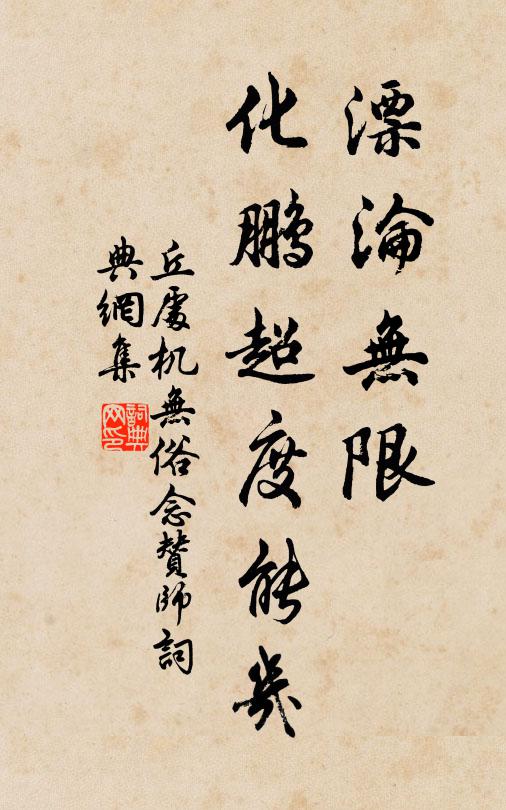 漂淪無限
化鵬超度能幾
丘處机無俗念贊師詞
典網集
詞典网印